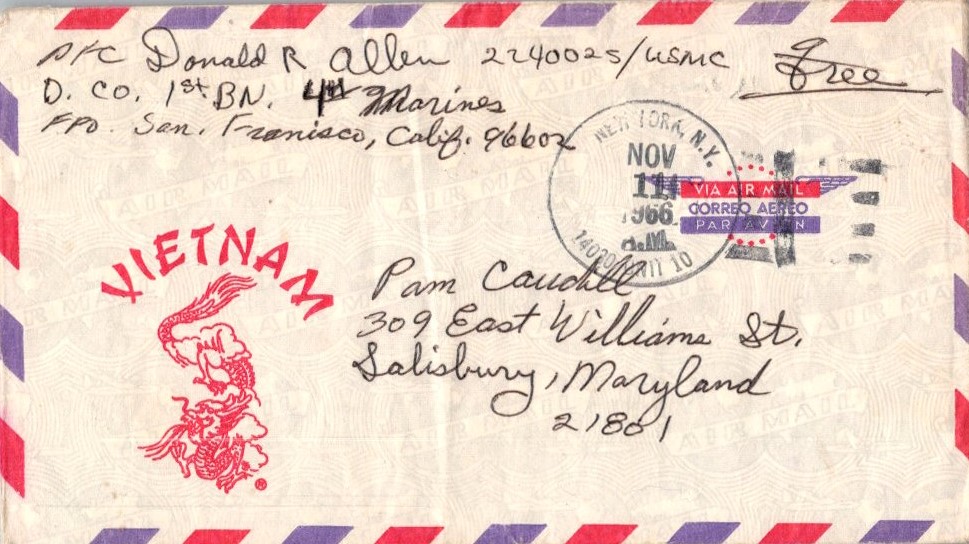 PFC Donald R Allen 2240025/USMC
Free
D. Co. 1st BN. 4th Marines
FPO. San. Franisco, Calif. 96602
NEW YORK, N.Y.
NOV
11
1966
A.M.
10
VIA AIR MAIL
CORREO AEREO
PAR AVION
VIETNAM
®
Pam Caudell
309 East Williams St.
Salisbury, Maryland
21801